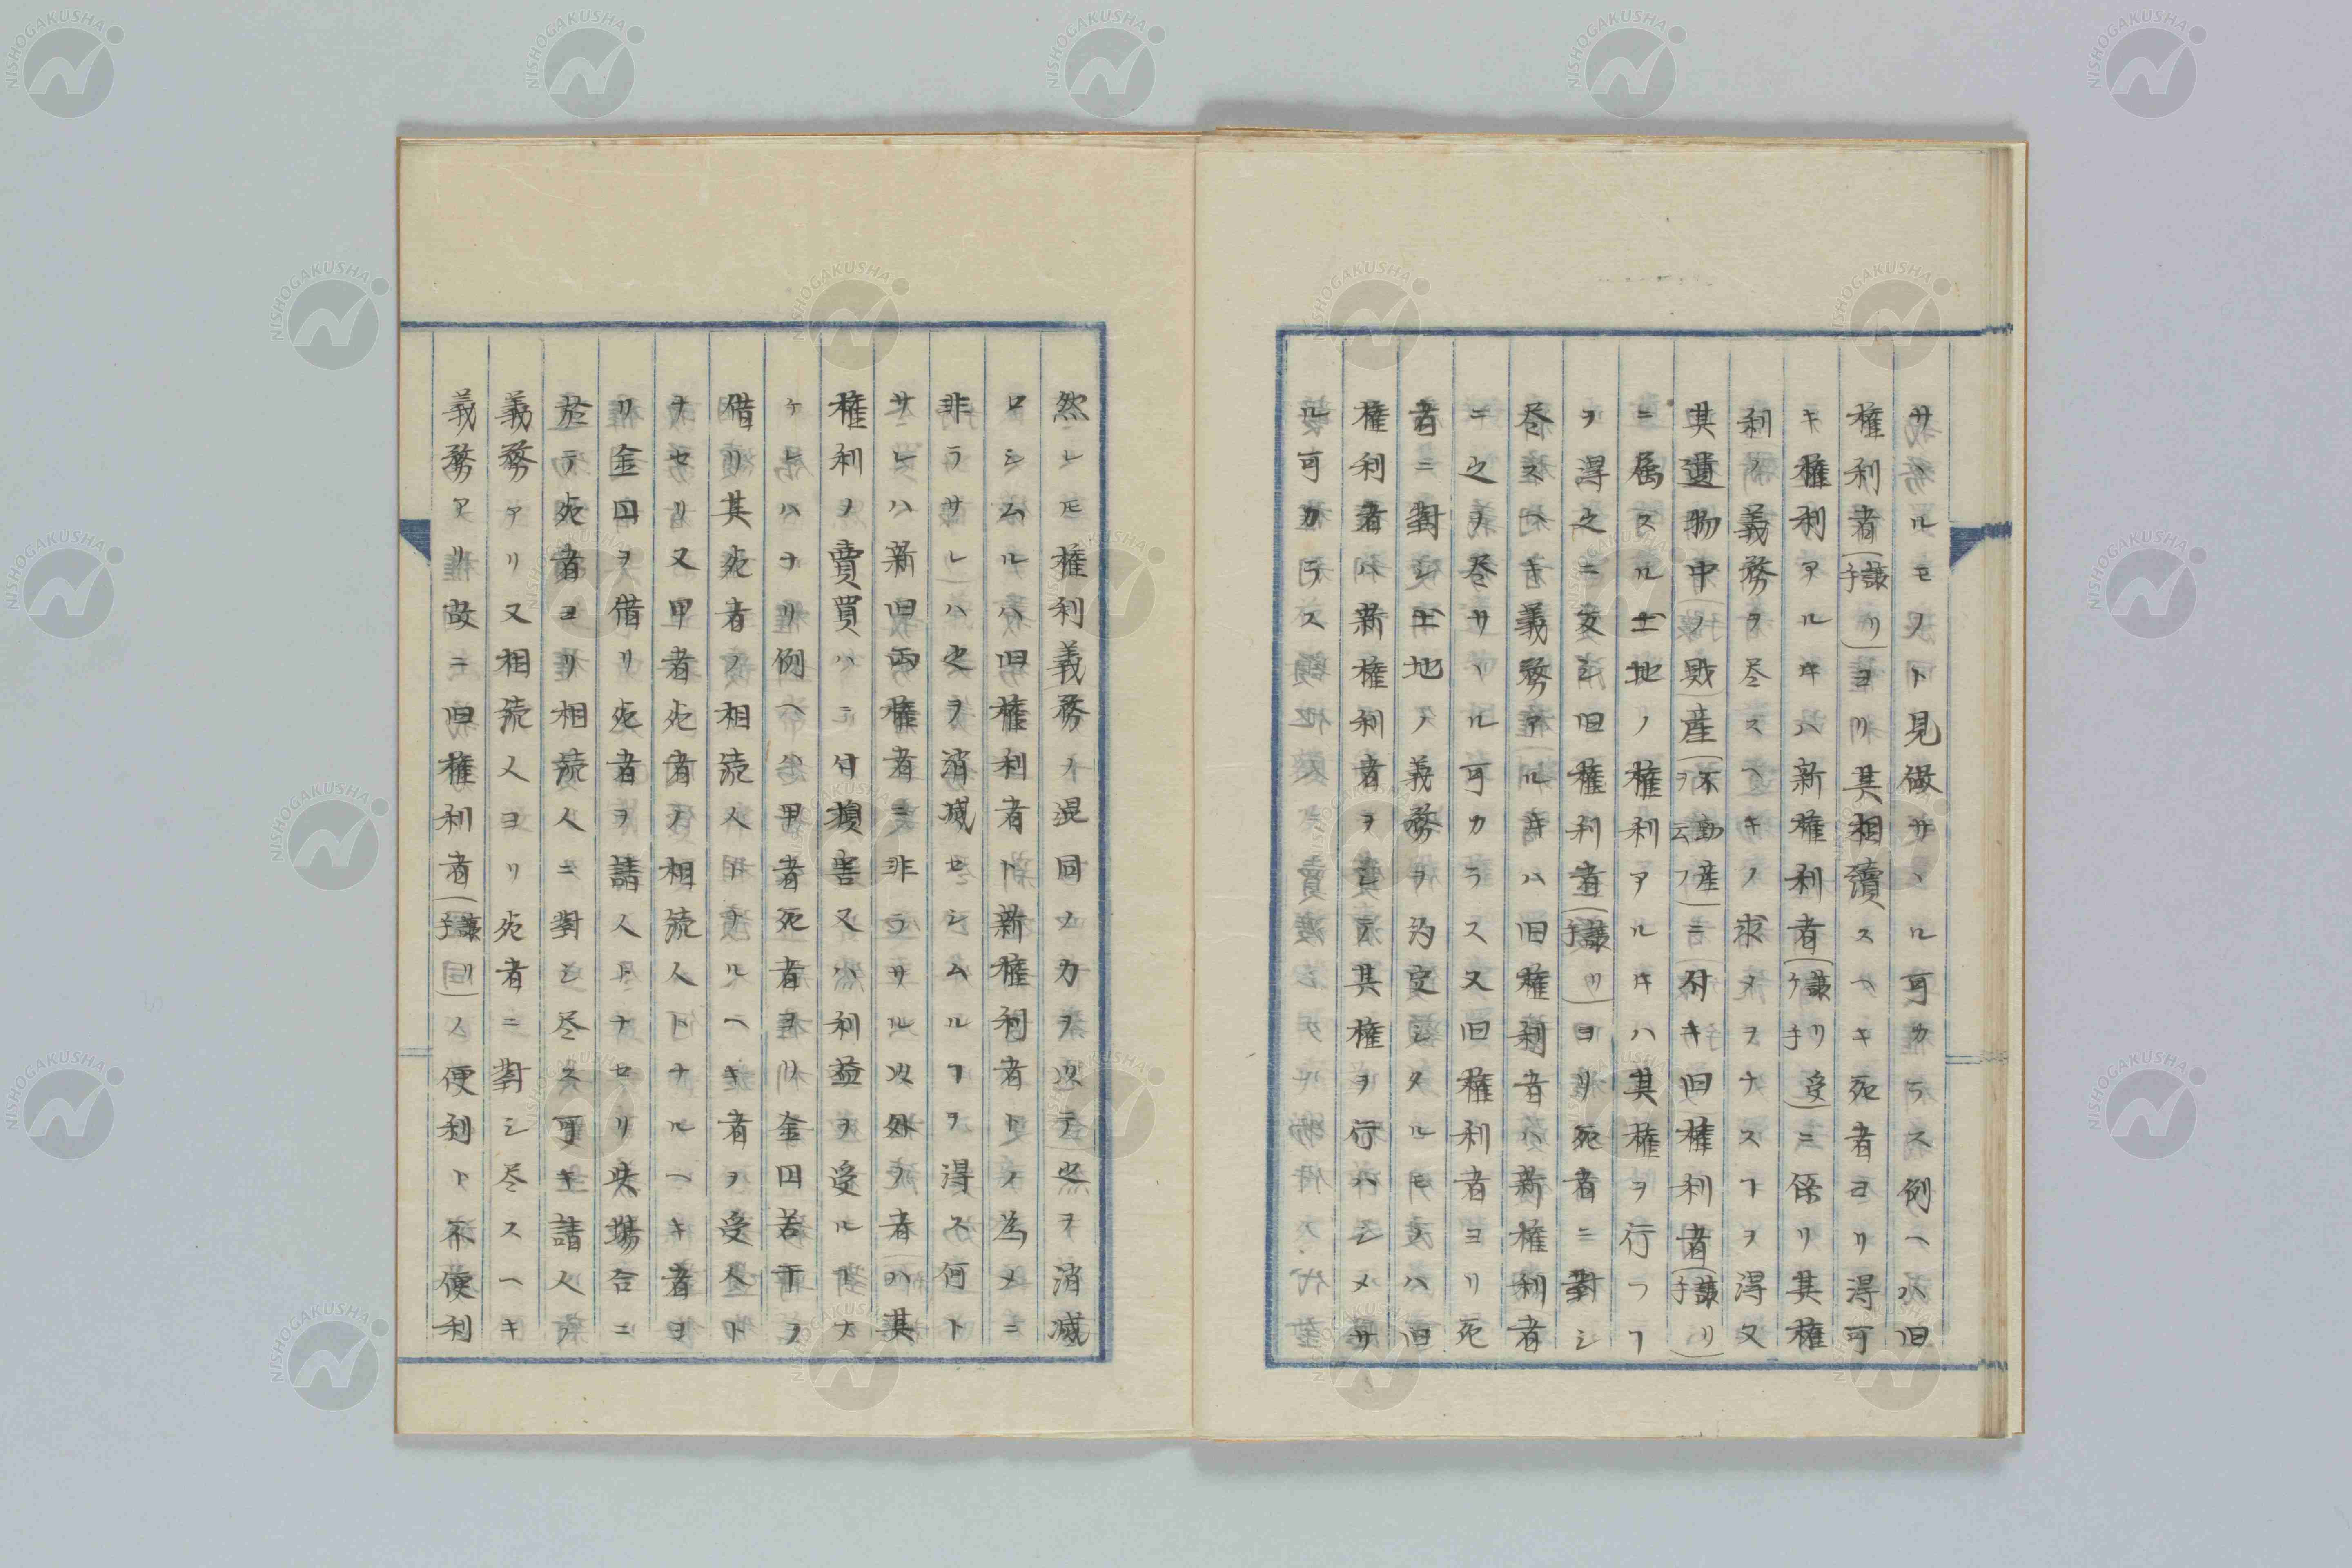 サヽルモノト見做サヽル可カラス例ヘハ旧
権利者(譲リ手)ヨリ其相續スヘキ死者ヨリ得可
キ権利アルキハ新権利者(譲リ受ケ手)ニ係リ其権
利ノ義務ヲ尽スヘキノ求メヲナスヿヲ得又
其遺物中ノ財産(不動産ノヲ云)ニ付キ旧権利者(譲リ手)
ニ属スル土地ノ権利アルキハ其権ヲ行フヿ
ヲ得之ニ反シ旧権利者(譲リ手)ヨリ死者ニ對シ
尽スヘキ義務アルキハ旧権利者ハ新権利者
ニ之ヲ尽サヽル可カラス又旧権利者ヨリ死
者ニ對シ土地ノ義務ヲ約定シタルモノハ旧
権利者ハ新権利者ヲシテ其権ヲ行ハシメサ
ル可カラス
然レモ権利義務ノ混同ノ力ヲ以テ之ヲ消滅
セシムルハ旧権利者ト新権利者トノ為メニ
非ラサレハ之ヲ消滅セシムルヿヲ得ス何ト
ナレハ新旧両権者ニ非ラサル以外ノ者ハ其
権利ノ賣買ハニ付損害又ハ利益ヲ受ルヿナ
ケレハナリ例ヘハ甲者死者ヨリ金円若干ヲ
借リ其死者ノ相続人トナルヘキ者ヲ受人ト
ナセリ又甲者死者ノ相続人トナルヘキ者ヨ
リ金円ヲ借リ死者ヲ請人トナセリ此場合ニ
於テ死者ヨリ相続人ニ對シ尽ス可キ請人ノ
義務アリ又相続人ヨリ死者ニ對シ尽スヘキ
義務アリ故ニ旧権利者(譲リ手)ノ便利ト不便利
NISHOGAKUSHA